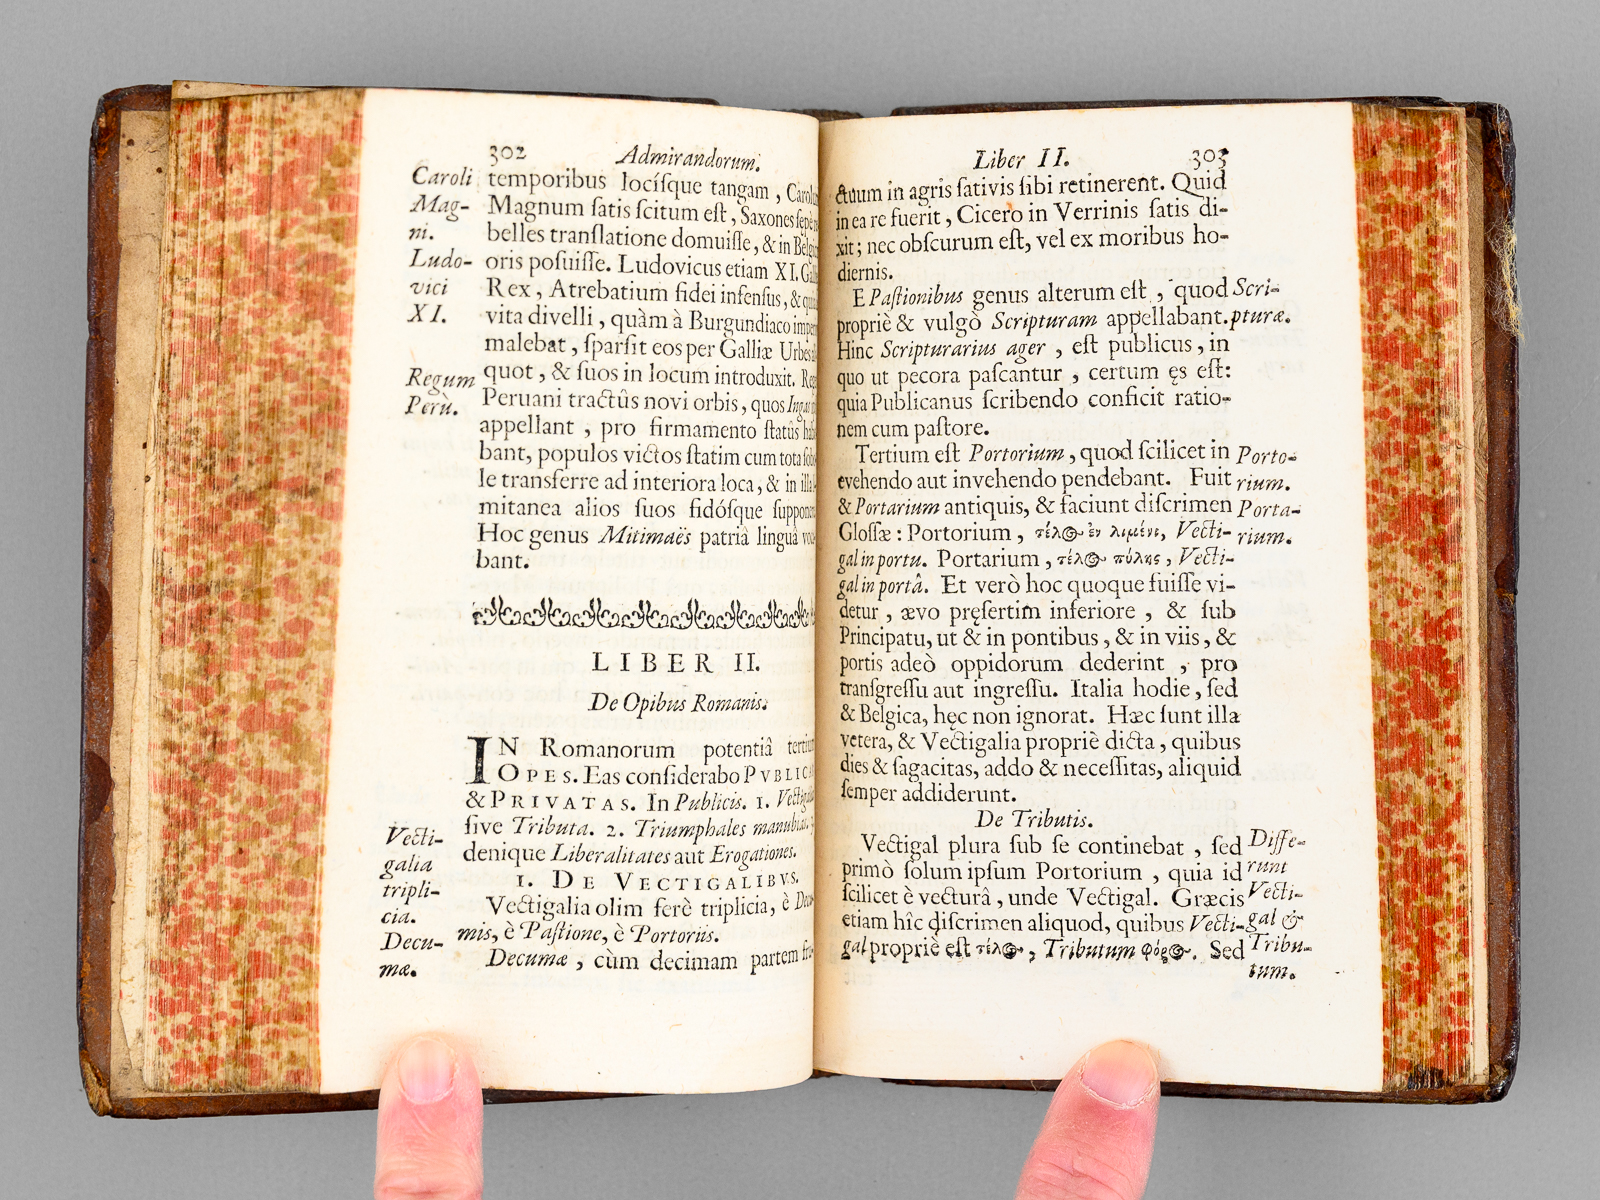 302 Admirandorum.
Caroli
Mag-
ni.
Ludo-
vici
XI.
Regum
Perù.
temporibus locíſque tangam, Carolum
Magnum ſatis ſcitum eſt, Saxones ſępè
belles tranſlatione domuiſſe, & in
oris poſuiſſe. Ludovicus etiam XI.
Rex, Atrebatium fidei infenſus, &
vita divelli, quàm à Burgundiaco
malebat, ſparſit eos per Galliæ Urbes
quot, & ſuos in locum introduxit.
Peruani tractûs novi orbis, quos Ingas
appellant, pro firmamento ſtatûs
bant, populos victos ſtatim cum tota
le transferre ad interiora loca, & in
mitanea alios ſuos fidóſque
Hoc genus Mitimaës patriâ linguâ
bant.
LIBER II.
De Opibus Romanis.
IN Romanorum potentiâ
OPES. Eas conſiderabo
& PRIVATAS. In Publicis. 1.
ſive Tributa. 2. Triumphales manubias.
denique Liberalitates aut Erogationes.
1. DE VECTIGALIBVS.
Vectigalia olim ferè triplicia, è
mis, è Paſtione, è Portoriis.
Decumæ, cùm decimam partem
Vecti-
galia
tripli-
cia.
Decu-
mæ.
Liber II. 303
ctuum in agris ſativis ſibi retinerent. Quid
in ea re fuerit, Cicero in Verrinis ſatis di-
xit; nec obſcurum eſt, vel ex moribus ho-
diernis.
E Paſtionibus genus alterum eſt, quod
propriè & vulgò Scripturam appellabant.
Hinc Scripturarius ager, eſt publicus, in
quo ut pecora paſcantur, certum ęs eſt:
quia Publicanus ſcribendo conficit ratio-
nem cum paſtore.
Tertium eſt Portorium, quod ſcilicet in
evehendo aut invehendo pendebant. Fuit
& Portarium antiquis, & faciunt diſcrimen
Gloſſæ: Portorium, τέλος ἐν λιμένι, Vecti-
gal in portu. Portarium, τέλος πύλης, Vecti-
gal in portâ. Et verò hoc quoque fuiſſe vi-
detur, ævo pręſertim inferiore, & ſub
Principatu, ut & in pontibus, & in viis, &
portis adeò oppidorum dederint, pro
tranſgreſſu aut ingreſſu. Italia hodie, ſed
& Belgica, hęc non ignorat. Hæc ſunt illa
vetera, & Vectigalia propriè dicta, quibus
dies & ſagacitas, addo & neceſſitas, aliquid
ſemper addiderunt.
De Tributis.
Vectigal plura ſub ſe continebat, ſed
primò ſolum ipſum Portorium, quia id
ſcilicet è vecturâ, unde Vectigal. Græcis
etiam hîc diſcrimen aliquod, quibus Vecti-
gal propriè eſt τέλος, Tributum φόρος. Sed
Scri-
pturæ.
Porto-
rium.
Porta-
rium.
Diffe-
runt
Vecti-
gal &
Tribu-
tum.